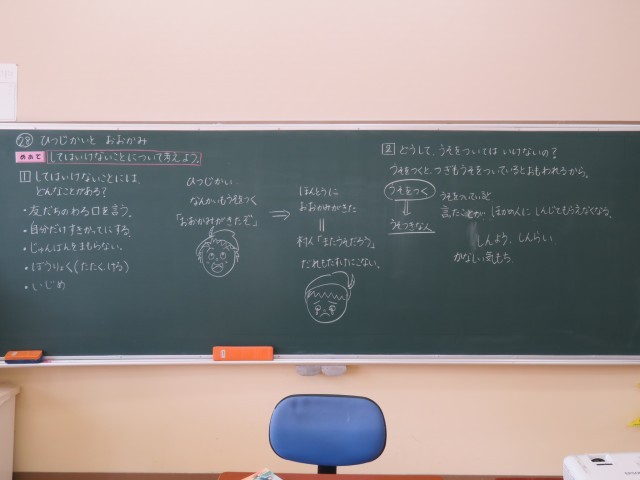 28 ひつじかいと おおかみ
めあて してはいけないことについて考えよう。
1 してはいけないことには、
どんなことがある?
・友だちのわる口を言う。
・自分だけすきかってにする。
・じゅんばんをまもらない。
・ぼうりょく(たたく、ける)
・いじめ
ひつじかい
なんかいもうそをつく
「おおかみがきたぞ」
⇒
ほんとうに
おおかみがきた
村人「またうそだろう」
だれもたすけにこない。
2 どうして、うそをついては いけないの?
うそをつくと、つぎもうそをついているとおもわれるから。
うそをつく
うそつきな人
うそをついた
言たことが ほかの人に しんじてもらえなくなる。
しんよう、しんらい
かなしい気もち